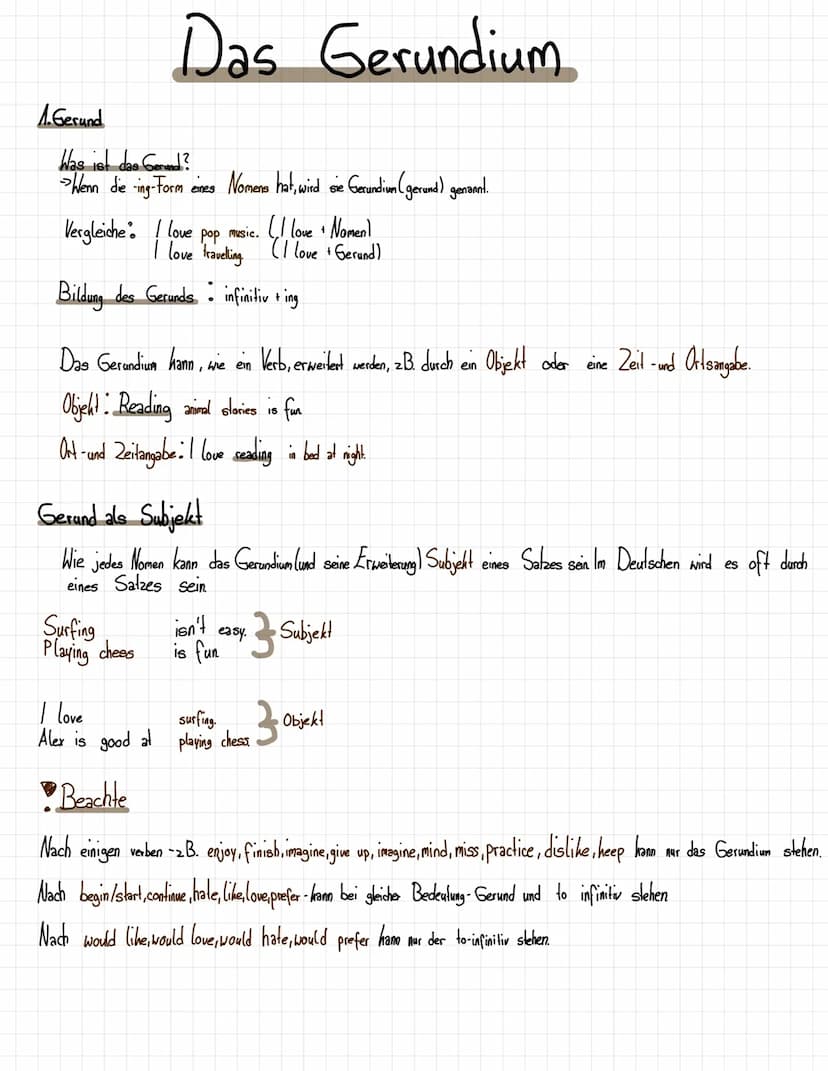 Das Gerundium
1.Gerund
Was ist das Gerund?
->Wenn die -ing-Form eines Nomens hat, wird sie Gerundium (gerund) genannt.
Vergleiche: I love pop music. (I love + Nomen)
I love travelling (I love + Gerund)
Bildung des Gerunds : infinitiv + ing
Das Gerundium kann, wie ein Verb, erweitert werden, z.B. durch ein Objekt oder eine Zeit -und Ortsangabe.
Objekt: Reading animal stories is fun
Ort -und Zeitangabe: I love reading in bed at night.
Gerund als Subjekt
Wie jedes Nomen kann das Gerundium (und seine Erweiterung) Subjekt eines Satzes sein Im Deutschen wird es oft durch
eines Satzes sein
Surfing isn't easy. } Subjekt
Playing chees is fun
I love surfing. } Objekt
Alex is good at playing chess.
! Beachte
Nach einigen verben -z.B. enjoy, finish, imagine, give up, imagine, mind, miss, practice, dislike, keep kann nur das Gerundium stehen.
Nach begin/start, continue, hate, like, love, prefer - kann bei gleicher Bedeutung - Gerund und to infinitiv stehen
Nach would like, would love, would hate, would prefer kann nur der to-infinitiv stehen.